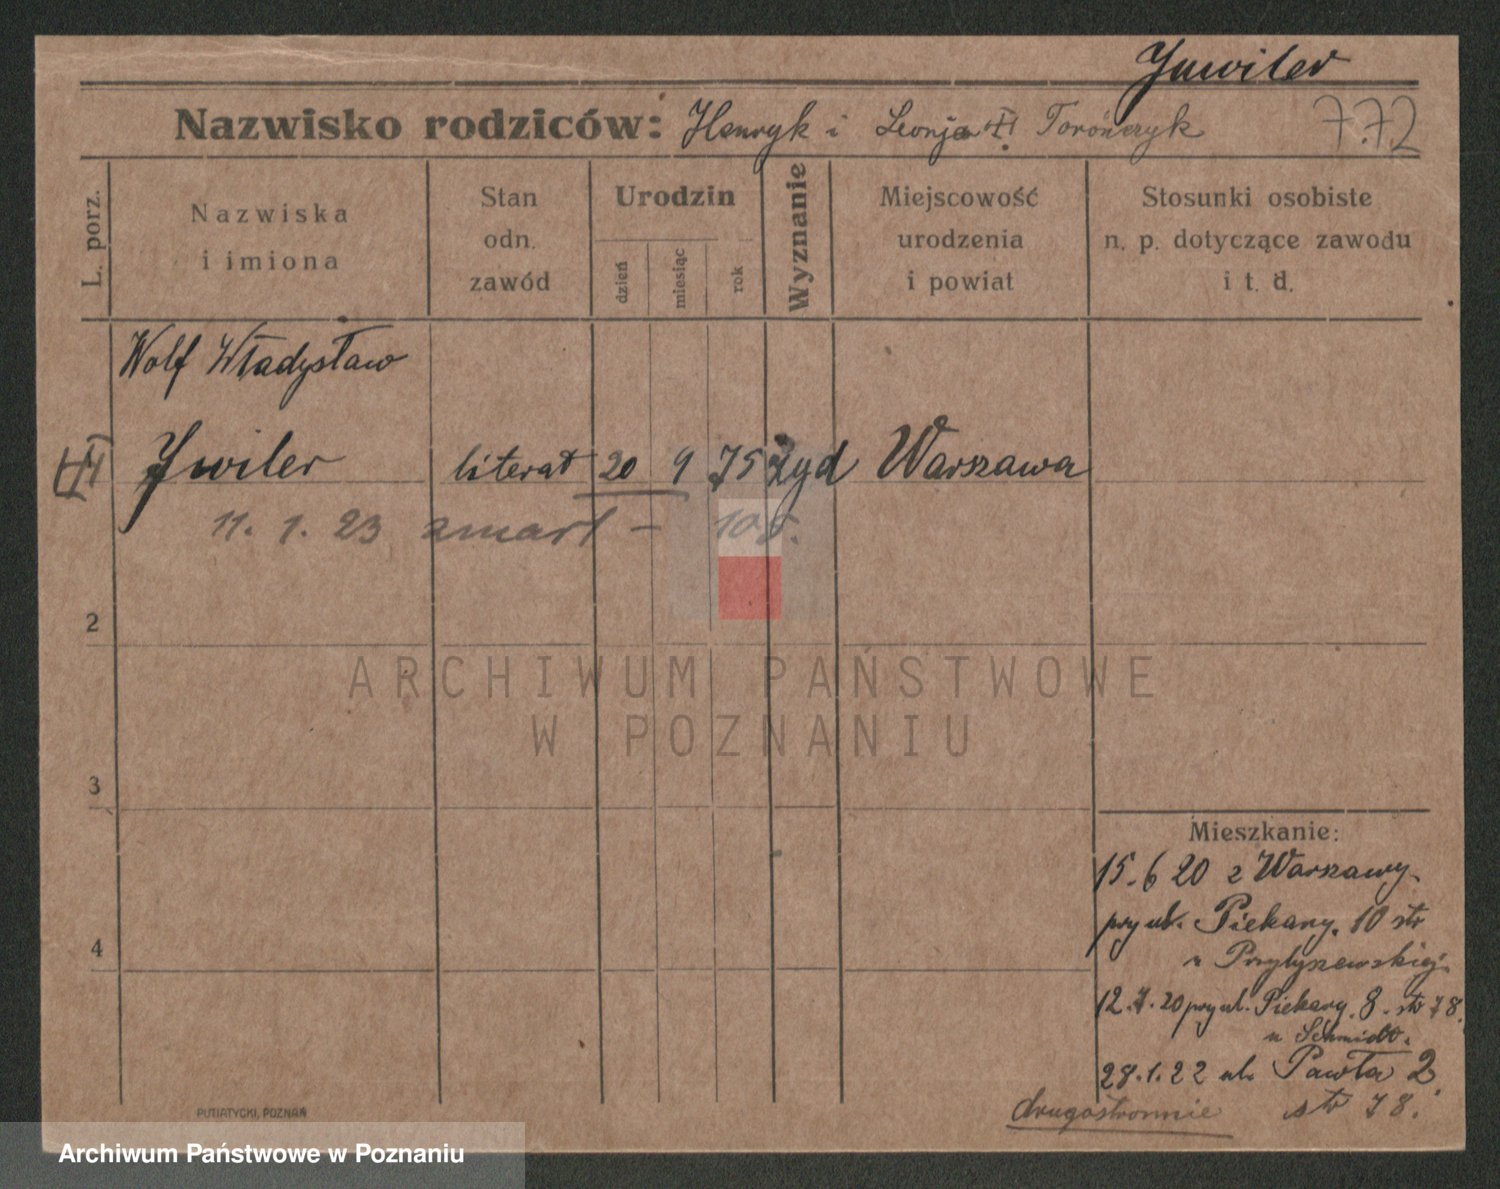 Juwiler
Nazwisko rodziców: Henryk i Leonja Torończyk 772
L. porz.
Nazwiska i imiona
Stan odn. zawód
Urodzin
dzień
miesiąc
rok
Wyznanie
Miejscowość urodzenia i powiat
Stosunki osobiste n. p. dotyczące zawodu i t. d.
Wolf Władysław
Juwiler literat 20 9 75 żyd Warszawa
11. 1. 23 zmarł – 105.
2
3
4
ARCHIWUM PAŃSTWOWE
W POZNANIU
Mieszkanie:
15.6 20 z Warszawy
przy ul. Piekary. 10 str
u Przybyszewskiej.
12.7.20 przy ul. Piekary. 8. str 78.
u Schmidt.
28.1.22 ul. Pawła 2
str 78.
drugostronnie
PUTIATYCKI, POZNAŃ
Archiwum Państwowe w Poznaniu